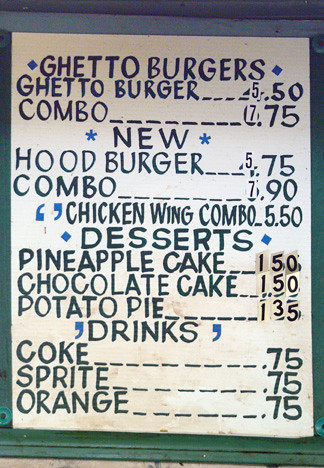 GHETTO BURGERS
GHETTO BURGER 5.50
COMBO 7.75
* NEW *
HOOD BURGER 5.75
COMBO 7.90
CHICKEN WING COMBO 5.50
DESSERTS
PINEAPPLE CAKE 1 50
CHOCOLATE CAKE 1 50
POTATO PIE 1 35
DRINKS
COKE .75
SPRITE .75
ORANGE .75